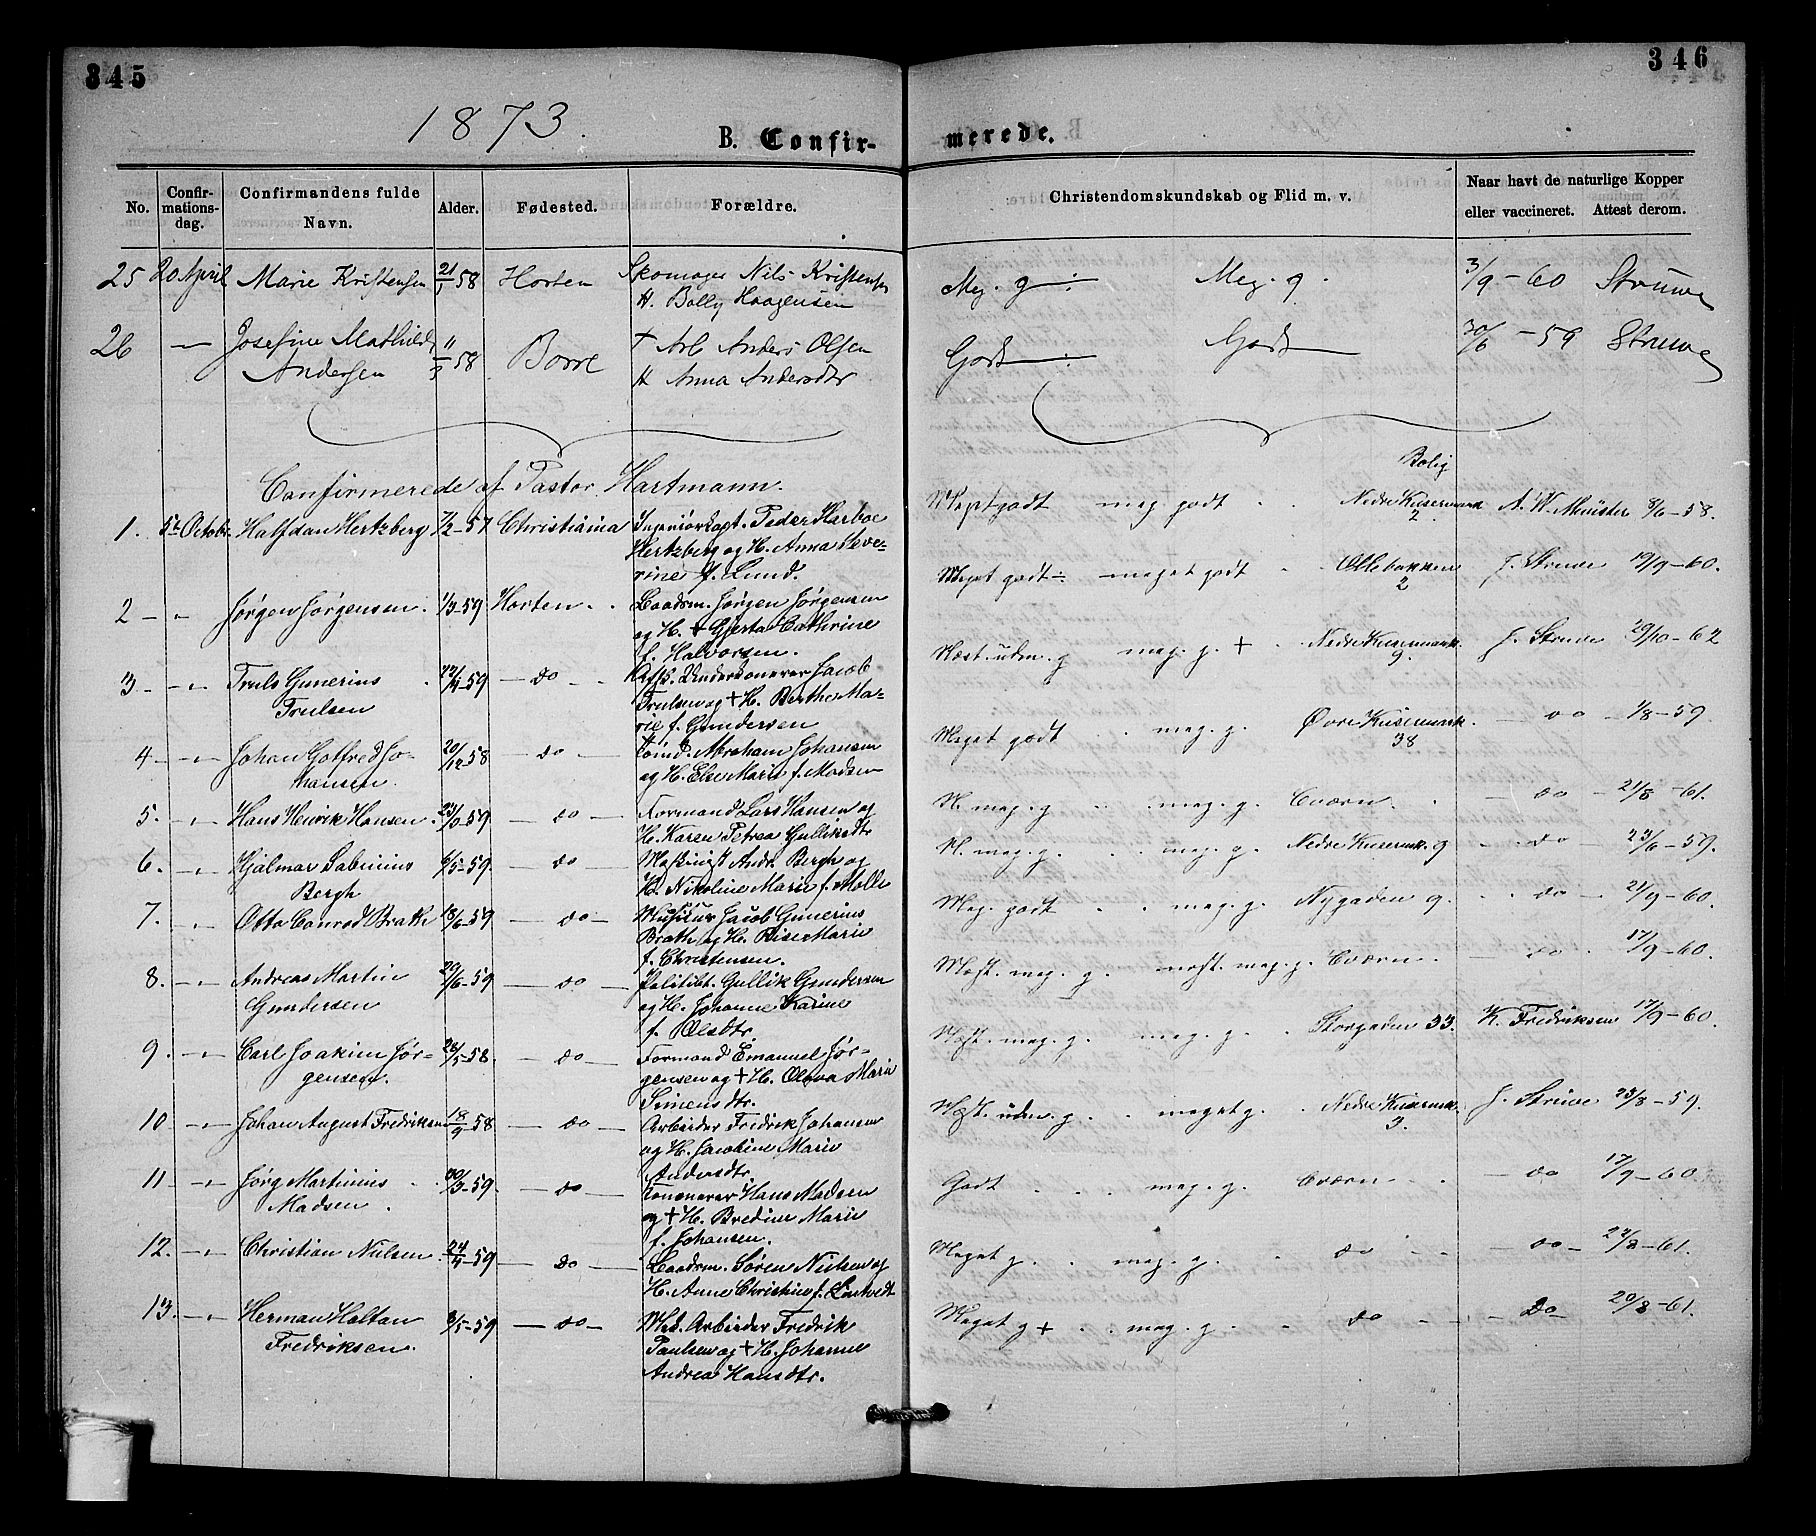 345
346
1873.
B. Confir-
merede.
No.
Confir-
mations-
dag.
Confirmandens fulde
Navn.
Alder.
Fødested.
Forældre.
Christendomskundskab og Flid m. v.
Naar havt de naturlige Kopper
eller vaccineret. Attest derom.
25 20 April Marie Kristensen 58 Horten Skomager Nils Kristensen Meg. g ÷ Meg. g. 3/9-60 Struwe
H. Bolly Haagensen
26 — Josefine Mathilde 11/3 58 Borre † Arb Anders Olsen Godt ÷ Godt 30/6 -59 Struwe
Andersen H Anna Andersdtr
Confirmerede af Pastor Hartmann.
Bolig
1. 5te Octobr. Halfdan Hertzberg 7/2-57 Christiania Ingeniørkapt. Peder Harboe Megetgodt meg godt Nedre Keisermark A. W. Münster 8/6-58.
Hertzberg og H. Anna Seve- 2.
rine f. Lund.
2 — " Jørgen Jørgensen. 1/3-59. Horten Baadsm. Jørgen Jørgensen Meget godt ÷ meget godt Ollebakken J. Struwe 19/9-60.
og H. + Gjerta Cathrine 2
f. Halvorsen.
3 — " — Truls Gunerius 22/4-59 — do — Underkanoneer Jacob Næst. udm. g meg. g. + Nedre Keisermark. J. Struwe 29/10-62
Trulsen Trulsen og + H. Berthe Ma- 9.
rie f. Gundersen
4 — " — Johan Gotfred Jo- 20/12 58 — do — Tømd. Abraham Johansen Meget godt meg. g. Øvre Keisermark. — do — 1/8-59.
hansen. og H. Else Marie f. Madsen 38
5. — " — Hans Henrik Hansen. 23/3-59 — do — Formand Lars Hansen og N. meg. g meg. g. Bværn. — do — 21/8-61.
H. Karen Petrea Gulliksdtr
6. — " — Hjalmar Sabinius 6/5-59. — do — Maskinist Andr. Bergh og N. meg. g. meg. g. Nedre Keisermk. 9 — do — 23/6-59.
Bergh H. Nikoline Marie f. Mølle
7. — " — Otto Conrad Brath 18/6-59 — do — Musicus Jacob Gunerius Meg. godt meg. g. Nygaden 9. do — 21/9-60.
Brath og H. Lise Marie
f. Christensen.
8. — " — Andreas Martin 29/6-59 — do — Politibt. Gullik Gundersen Mest. meg. g. mest. meg. g. Bværn. — do — 17/9-60.
Gundersen og H. Johanne Karine
f. Olsdtr.
9. — " — Carl Joakim Jør- 28/5-58. — do — Formand Emanuel Jør- Mest. meg. g. meg. g. Storgaden 33. K. Fredriksen 17/9-60.
gensen. gensen og + H. Oleva Marie
Simensdtr.
10 — " — Johan August Fredriksen 18/9-58 — do — Arbeider Fredrik Johansen Mest. udm. g. meget g. Nedre Keisermk. J. Struwe 23/8-59.
og H. Jacobine Marie 3.
Andersdtr.
11. — " — Jørg Martinius 30/3-59. — do — Kanoneer Hans Madsen Godt meg. g. Bværn — do 17/9-60.
Madsen. og + H. Bredine Marie
f. Johansen.
12. — " — Christian Nielsen 24/4-59 — do — Baadsm. Søren Nielsen og Meget g. meg. g. do — do — 27/8-61.
H. Anne Christine f. Lintvedt
13. — " — Herman Holtan 8/5-59 — do — Md. Arbeider Fredrik Meget g + meg. g. do — Do — 20/8-61.
Fredriksen. Paulsen og + H. Johanne
Andrea Hansdtr.